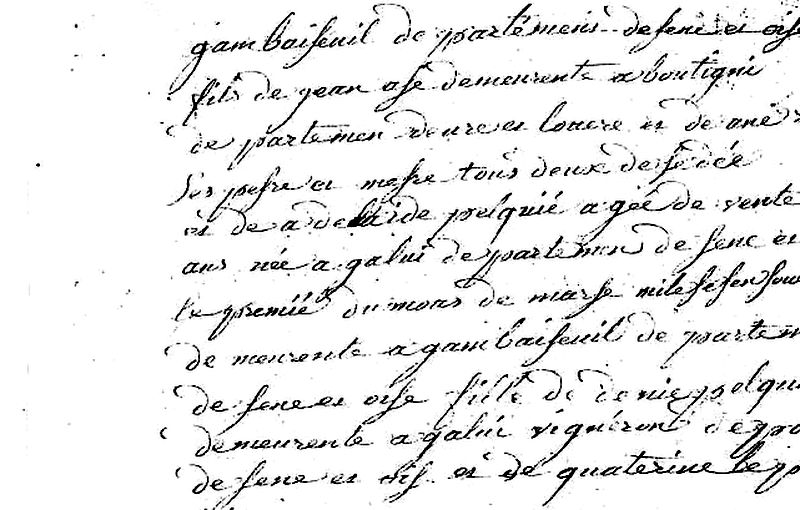 gambaiseuil de partémens de sene et oise
fils de jean asé demeurente a boutigni
de partemen deure et louere et de ane
ses pesre et mesre tous deux de sédée
et de adelaide pelquié agée de vente
ans née a galui de partemen de sene et
le premié du moas de marse mile sesen soua
de meurente a gambaiseuil de partem
de sene et oise fille de denie pelqui
demeurente a galui vignéront de pa
de sene et ois et de quaterine le p